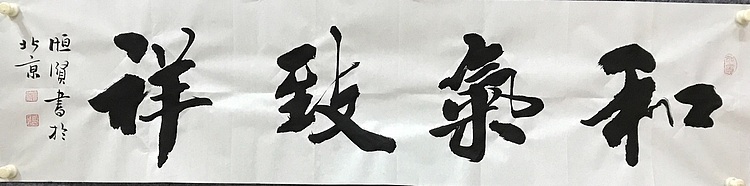 和氣致祥
恒賢書於
北京